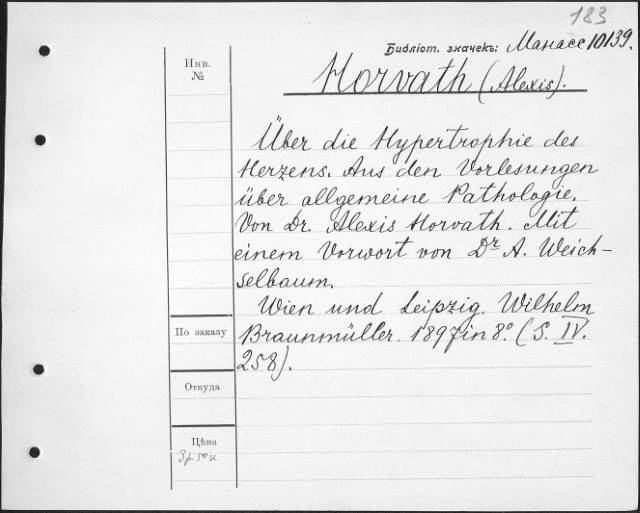 183
Библіот. значекъ: Манасс 10139.
Инв.
№
Horvath (Alexis).
Über die Hypertrophie des
Herzens. Aus den Vorlesungen
über allgemeine Pathologie.
Von Dr. Alexis Horvath. Mit
einem Vorwort von Dr A. Weich-
selbaum.
Wien und Leipzig. Wilhelm
Braunmüller. 1897 in 8º. (S. IV.
258).
По заказу
Откуда
Цѣна
3 р. 50 к.